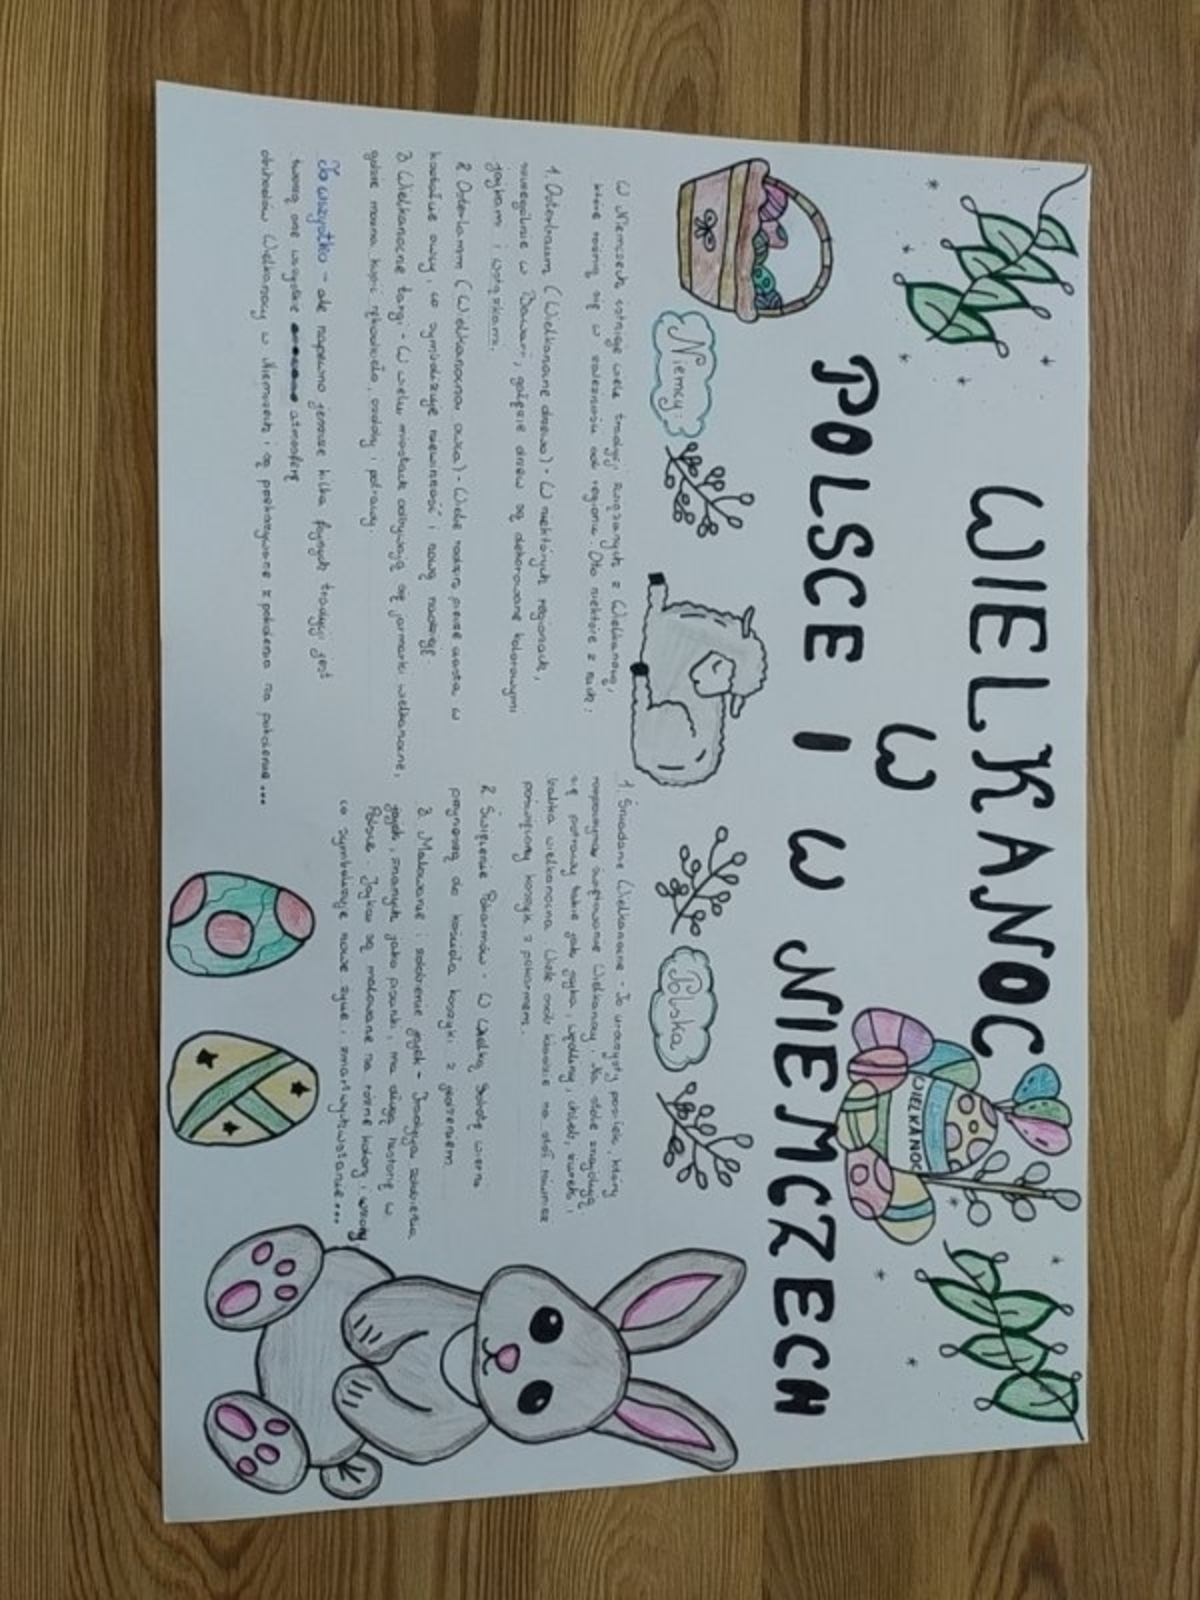 WIELKANOC
W
POLSCE I W NIEMCZECH
WIELKANOC
Niemcy:
W Niemczech istnieje wiele tradycji związanych z Wielkanocą,
które różnią się w zależności od regionu. Oto niektóre z nich:
1. Osterbaum (Wielkanocne drzewo) - W niektórych regionach,
szczególnie w Bawarii, gałęzie drzew są dekorowane kolorowymi
jajkami i wstążkami.
2. Osterlamm (Wielkanocna owca) - Wiele rodzin piecze ciasta w
kształcie owcy, co symbolizuje niewinność i nową nadzieję
3. Wielkanocne targi - W wielu miastach odbywają się jarmarki wielkanocne,
gdzie można kupić rękodzieło, ozdoby i potrawy.
To wszystko - ale napewno jeszcze kilka fajnych tradycji jest
tworzą one wszystkie atmosferę
obchodów Wielkanocy w Niemczech i są przekazywane z pokolenia na pokolenie...
Polska
1. Śniadanie Wielkanocne - To uroczysty posiłek, który
rozpoczyna świętowanie Wielkanocy. Na stole znajdują
się potrawy takie jak jajka, wędliny, chleb, żurek i
babka wielkanocna. Wiele osób kładzie na stół również
poświęcony koszyk z pokarmem.
2. Święcenie Pokarmów - W Wielką Sobotę wierni
przynoszą do kościoła koszyki z jedzeniem.
3. Malowanie i zdobienie jajek - Tradycja zdobienia
jajek, znanych jako pisanki, ma długą historię w
Polsce. Jajka są malowane na różne kolory i wzory
co symbolizuje nowe życie i zmartwychwstanie...